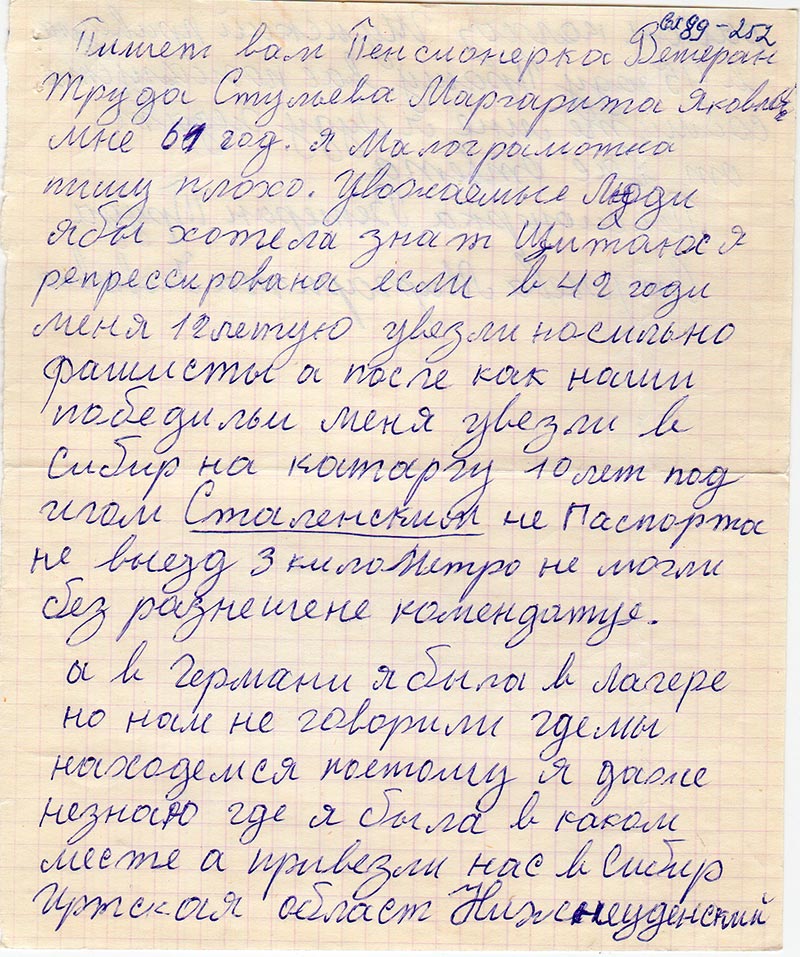 вх 99-252
Пишет вам Пенсионерка Ветеран
Труда Стульева Маргарита Яковл
мне 61 год. я Малограмотна
пишу плохо. Уважаемые Люди
ябы хотела знат Щитаюся
репрессирована если в 42 годи
меня 12летую увезлиносильно
фашисты а после как наши
победильи меня увезли в
Сибир на катаргу 10 лет под
игом Сталенским не Паспорта
не выезд 3 километро не могли
без разнешене комендатуе.
а в Германи я была в лагере
но нам не говорили гдемы
находемся поетому я даже
незнаю где я была в каком
месте а привезли нас в Сибир
Иртская област Нижнеуденский